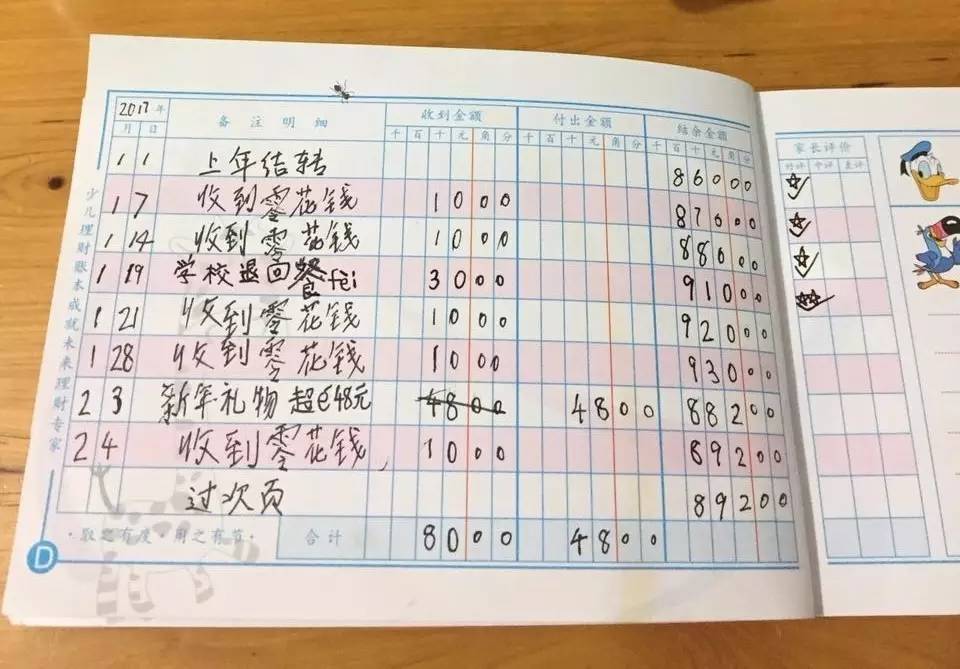 2017年
月 日 备注明细 收到金额 付出金额 结余金额
千 百 十 元 角 分 千 百 十 元 角 分 千 百 十 元 角 分
1 1 上年结转 86000
1 7 收到零花钱 1000 87000
1 14 收到零花钱 1000 88000
1 19 学校退回餐fèi 3000 91000
1 21 收到零花钱 1000 92000
1 28 收到零花钱 1000 93000
2 3 新年礼物超过48元 4800 4800 88200
2 4 收到零花钱, 1000 89200
过次页 89200
·取之有度·用之有节· 合计 8000 4800
少儿理财账本成就未来理财专家
D
家长评价
好评 中评 差评